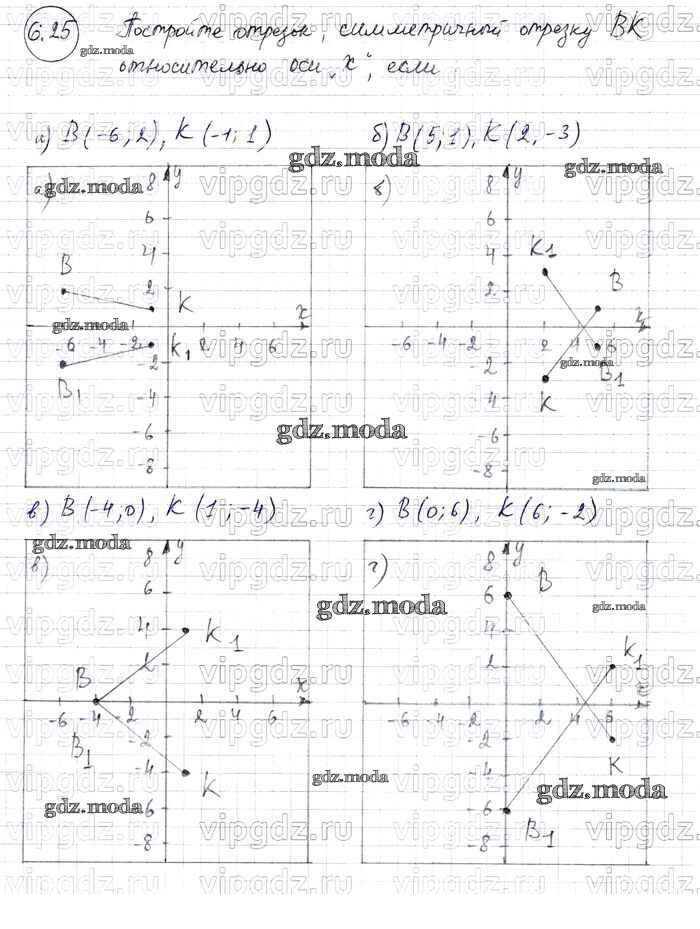 6.25 Постройте отрезок, симметричный отрезку ВК
относительно оси „х", если
а) В(-6; 2), К(-1; 1) б) В(5; 1), К(2, -3)
а) 8 у б) 8 у
6 6
4 4 К1
В 2 К х 2 В х
-6 -4 -2 2 4 6 -6 -4 -2 2 4 6
В1 -2 К1 -2 К В1
-4 -4
-6 -6
-8 -8
в) В(-4; 0), К(1; -4) г) В(0; 6), К(6; -2)
в) 8 у г) 8 у
6 6 В
4 К1 4
В 2 х 2 К1 х
-6 -4 -2 2 4 6 -6 -4 -2 2 4 6
В1 -2 -2 К
-4 К -4
-6 -6 В1
-8 -8
gdz.moda
vipgdz.ru